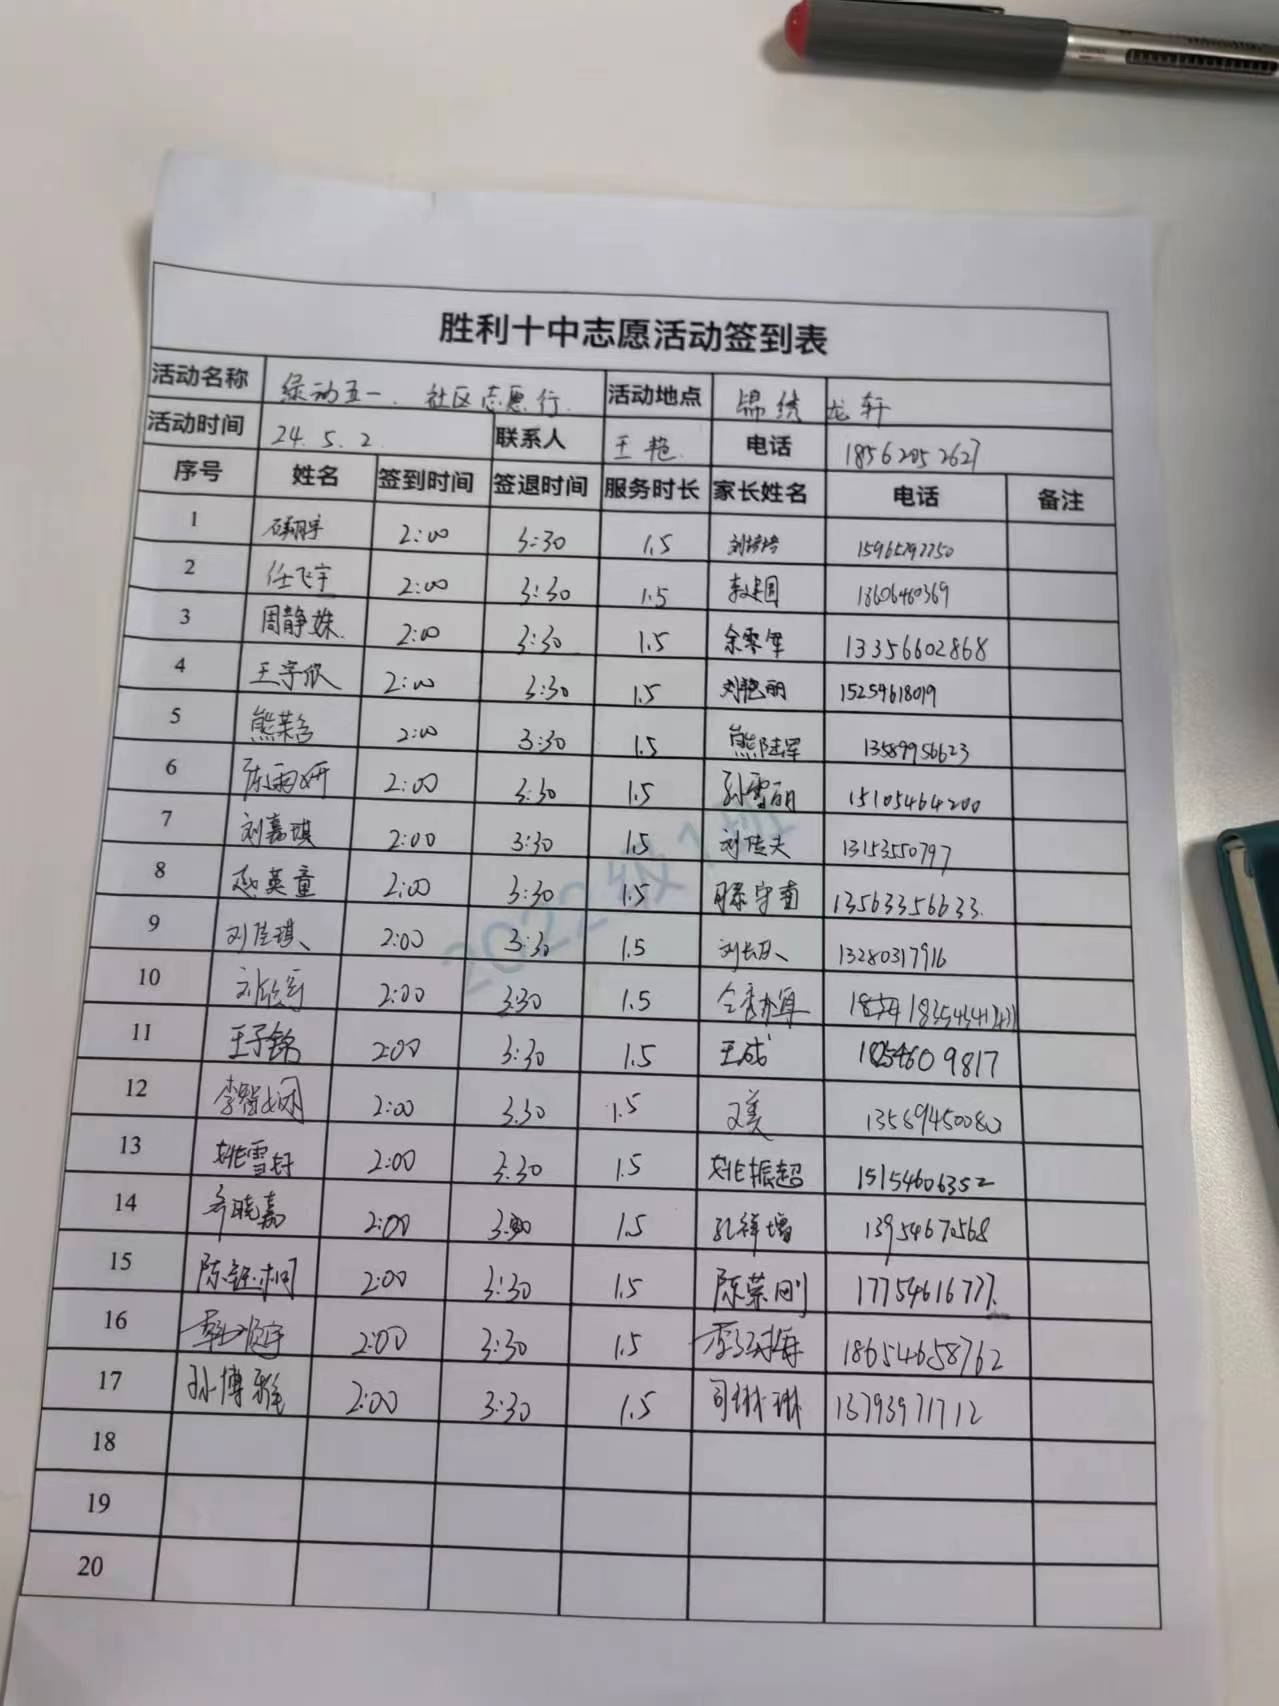 胜利十中志愿活动签到表
活动名称 绿动五一、社区志愿行 活动地点 锦绣龙轩
活动时间 24.5.2 联系人 王艳 电话 18562052627
序号 姓名 签到时间 签退时间 服务时长 家长姓名 电话 备注
1 2:00 3:30 1.5 刘婷婷
2 任飞宇 2:00 3:30 1.5 18606460369
3 周静姝 2:00 3:30 1.5 余零军 13356602868
4 王宇欣 2:00 3:30 1.5 刘艳丽 15254618019
5 2:00 3:30 1.5 熊陆军 13589956623
6 陈雨妍 2:00 3:30 1.5 孙雪丽 15105464200
7 刘嘉琪 2:00 3:30 1.5 刘传夫 13153550797
8 赵英童 2:00 3:30 1.5 滕守南 13563356633
9 刘佳琪 2:00 3:30 1.5 13280317916
10 2:00 3:30 1.5
11 王子铭 2:00 3:30 1.5 王成
12 2:00 3:30 1.5 13589450080
13 姚雪轩 2:00 3:30 1.5 姚振超 15154606352
14 齐晓嘉 2:00 3:30 1.5 孔祥增 13954670568
15 陈钰桐 2:00 3:30 1.5 陈荣刚 17754616777
16 2:00 3:30 1.5 18654658762
17 孙博雅 2:00 3:30 1.5 司琳琳 13793971712
18
19
20